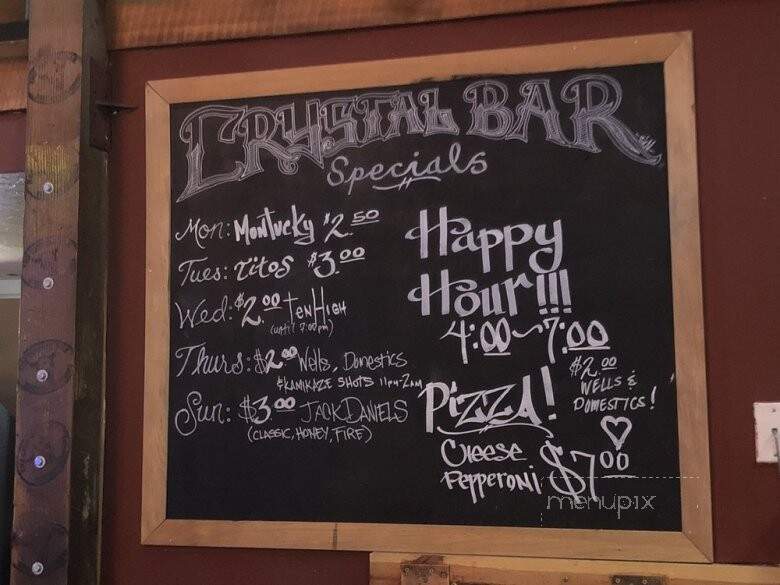 CRYSTAL BAR
Specials
Mon: Montucky $2.50
Tues: Titos $3.00
Wed: $2.00 Ten High
(until 7:00pm)
Thurs: $2.00 Wells, Domestics
& KAMIKAZE SHOTS 11PM-2AM
Sun: $3.00 JACK DANIELS
(CLASSIC, HONEY, FIRE)
Happy
Hour!!!
4:00~7:00
$2.00
WELLS &
DOMESTICS!
Pizza!
Cheese
Pepperoni $7.00
menupix